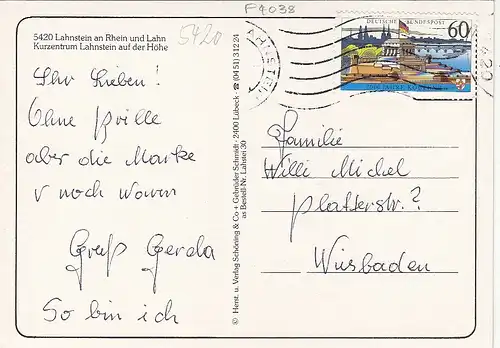 F 4038
5420
5420 Lahnstein an Rhein und Lahn
Kurzentrum Lahnstein auf der Höhe
Ihr Lieben!
Ohne Brille
aber die Marke
noch
Gruß Gerda
So bin ich
© Herst. u. Verlag Schöning & Co + Gebrüder Schmidt · 2400 Lübeck · ☎ (04 51) 3 12 24
as Bestell-Nr. Lahstei 30
DEUTSCHE BUNDESPOST
60
2000 JAHRE KOBLENZ
Familie
Willi Michel
Platterstr.?
Wiesbaden